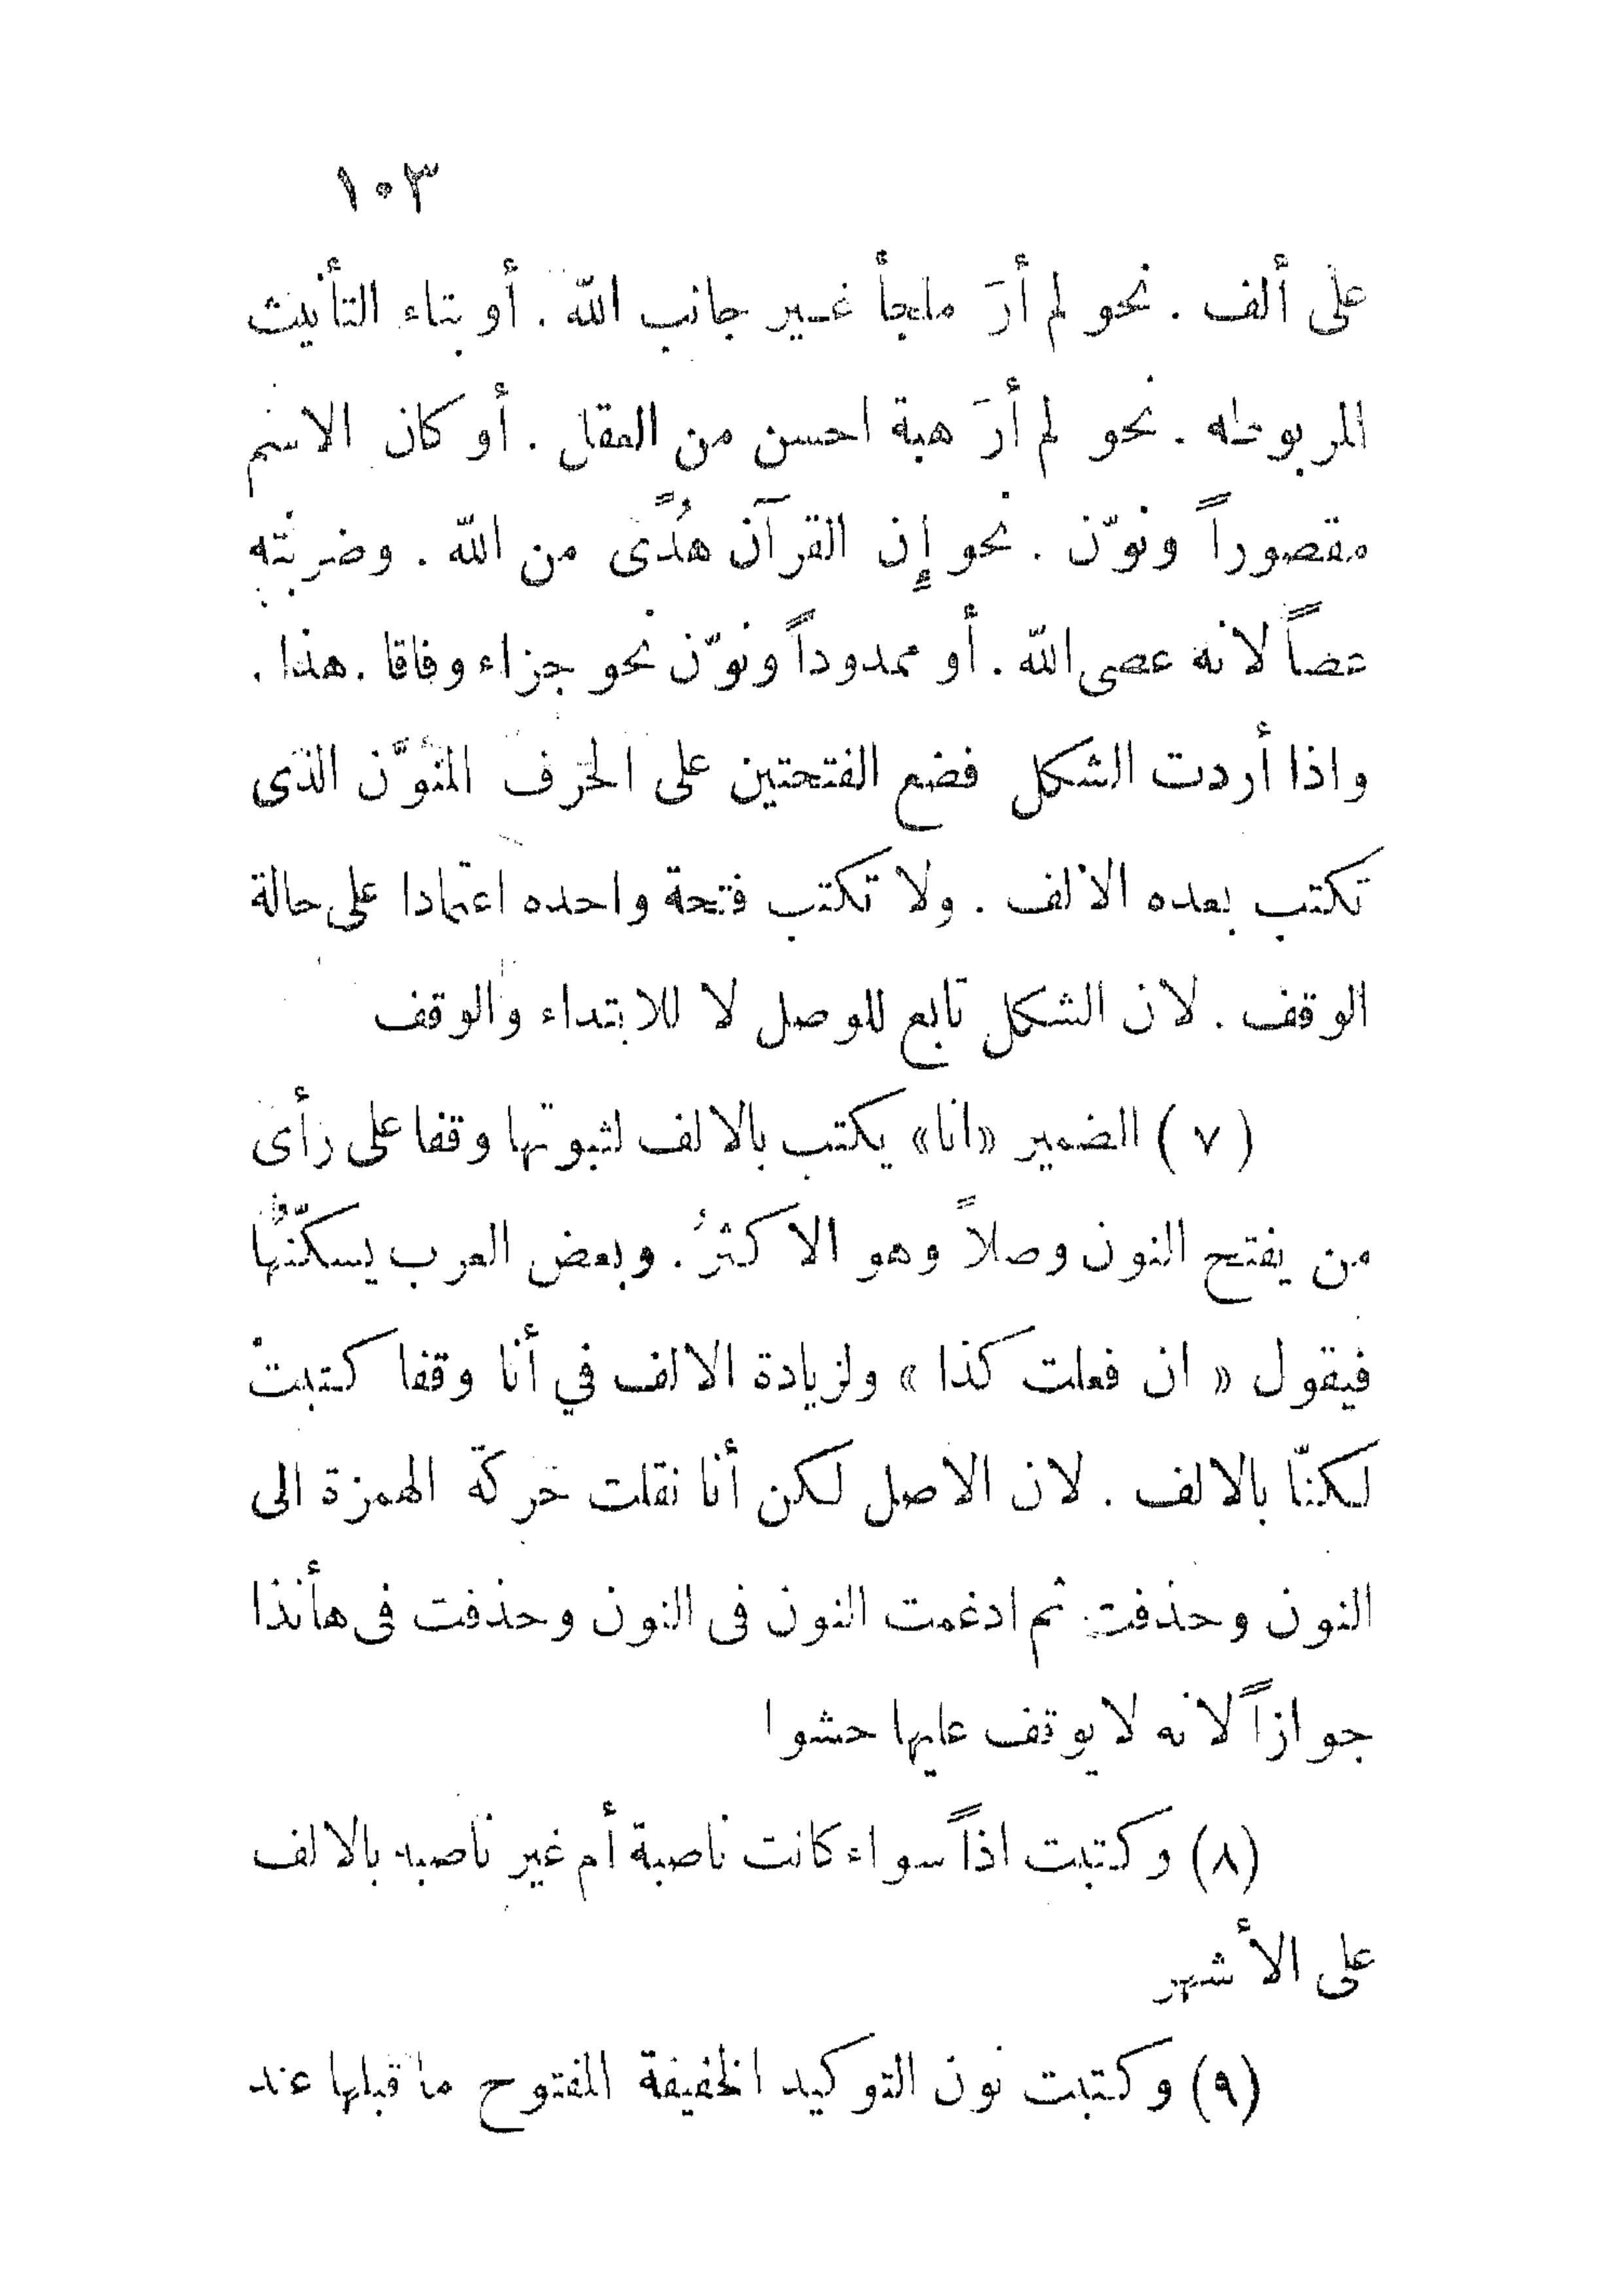 ١٠٣
على ألف . نحو لم أرَ ملجأ غير جانب الله . أو بتاء التأنيث
المربوطه . نحو لم أرَ هبة احسن من العقل . أو كان الاسم
مقصوراً ونوّن . نحو إن القرآن هُدًى من الله . وضربته
عصاً لانه عصى الله . أو ممدوداً ونوّن نحو جزاء وفاقا . هذا .
واذا أردت الشكل فضع الفتحتين على الحرف المنوَّن الذى
تكتب بعده الالف . ولا تكتب فتحة واحده اعتمادا على حالة
الوقف . لان الشكل تابع للوصل لا للابتداء والوقف
(٧) الضمير «انا» يكتب بالالف لثبوتها وقفا على رأى
من يفتح النون وصلاً وهو الاكثرُ . وبعض العرب يسكّنُها
فيقول « ان فعلت كذا » ولزيادة الالف في أنا وقفا كتبتْ
لكنّا بالالف . لان الاصل لكن أنا نقلت حركة الهمزة الى
النون وحذفت ثم ادغمت النون فى النون وحذفت فى هأنذا
جوازاً لانه لا يوقف عليها حشوا
(٨) وكتبت اذاً سواء كانت ناصبة أم غير ناصبه بالالف
على الأشهر
(٩) وكتبت نون التوكيد الخفيفة المفتوح ما قبلها عند